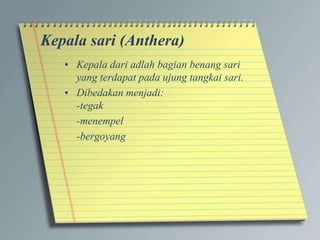 Kepala sari (Anthera)
• Kepala dari adlah bagian benang sari
yang terdapat pada ujung tangkai sari.
• Dibedakan menjadi:
-tegak
-menempel
-bergoyang